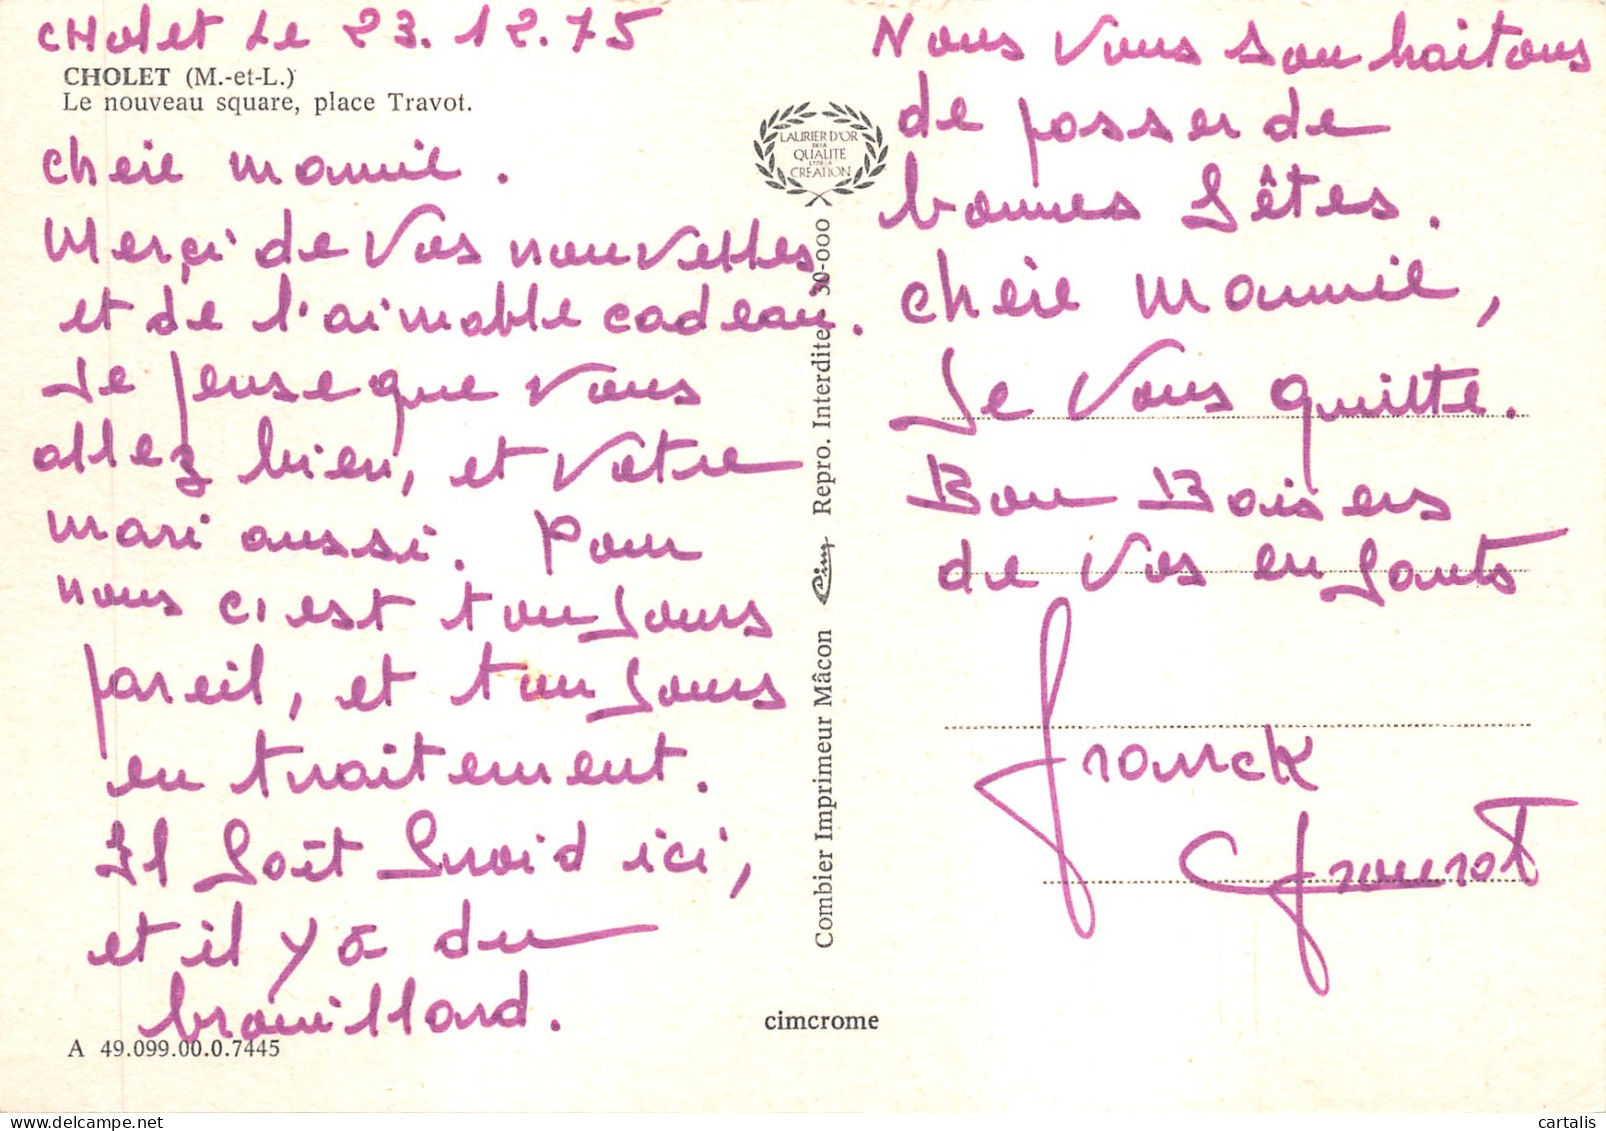 CHolet Le 23.12.75
CHOLET (M.-et-L.)
Le nouveau square, place Travot.
Cheie mamie.
Merçi de Vos nouvelles
et de l'aimable cadeau.
Je pense que Vous
allez bien, et Votre
mari aussi. Pour
nous c'est toujours
pareil, et toujours
en traitement.
Il foit froid ici,
et il y a du
brouillard.
A 49.099.00.0.7445
LAURIER D'OR
DE LA
QUALITE
ET DE LA
CREATION
Combier Imprimeur Mâcon Cim Repro. Interdite 30-000
cimcrome
Nous Vous souhaitons
de passer de
bonnes fêtes.
cheie mamie,
Je Vous quitte.
Bon Baisers
de Vos enfants
Franck